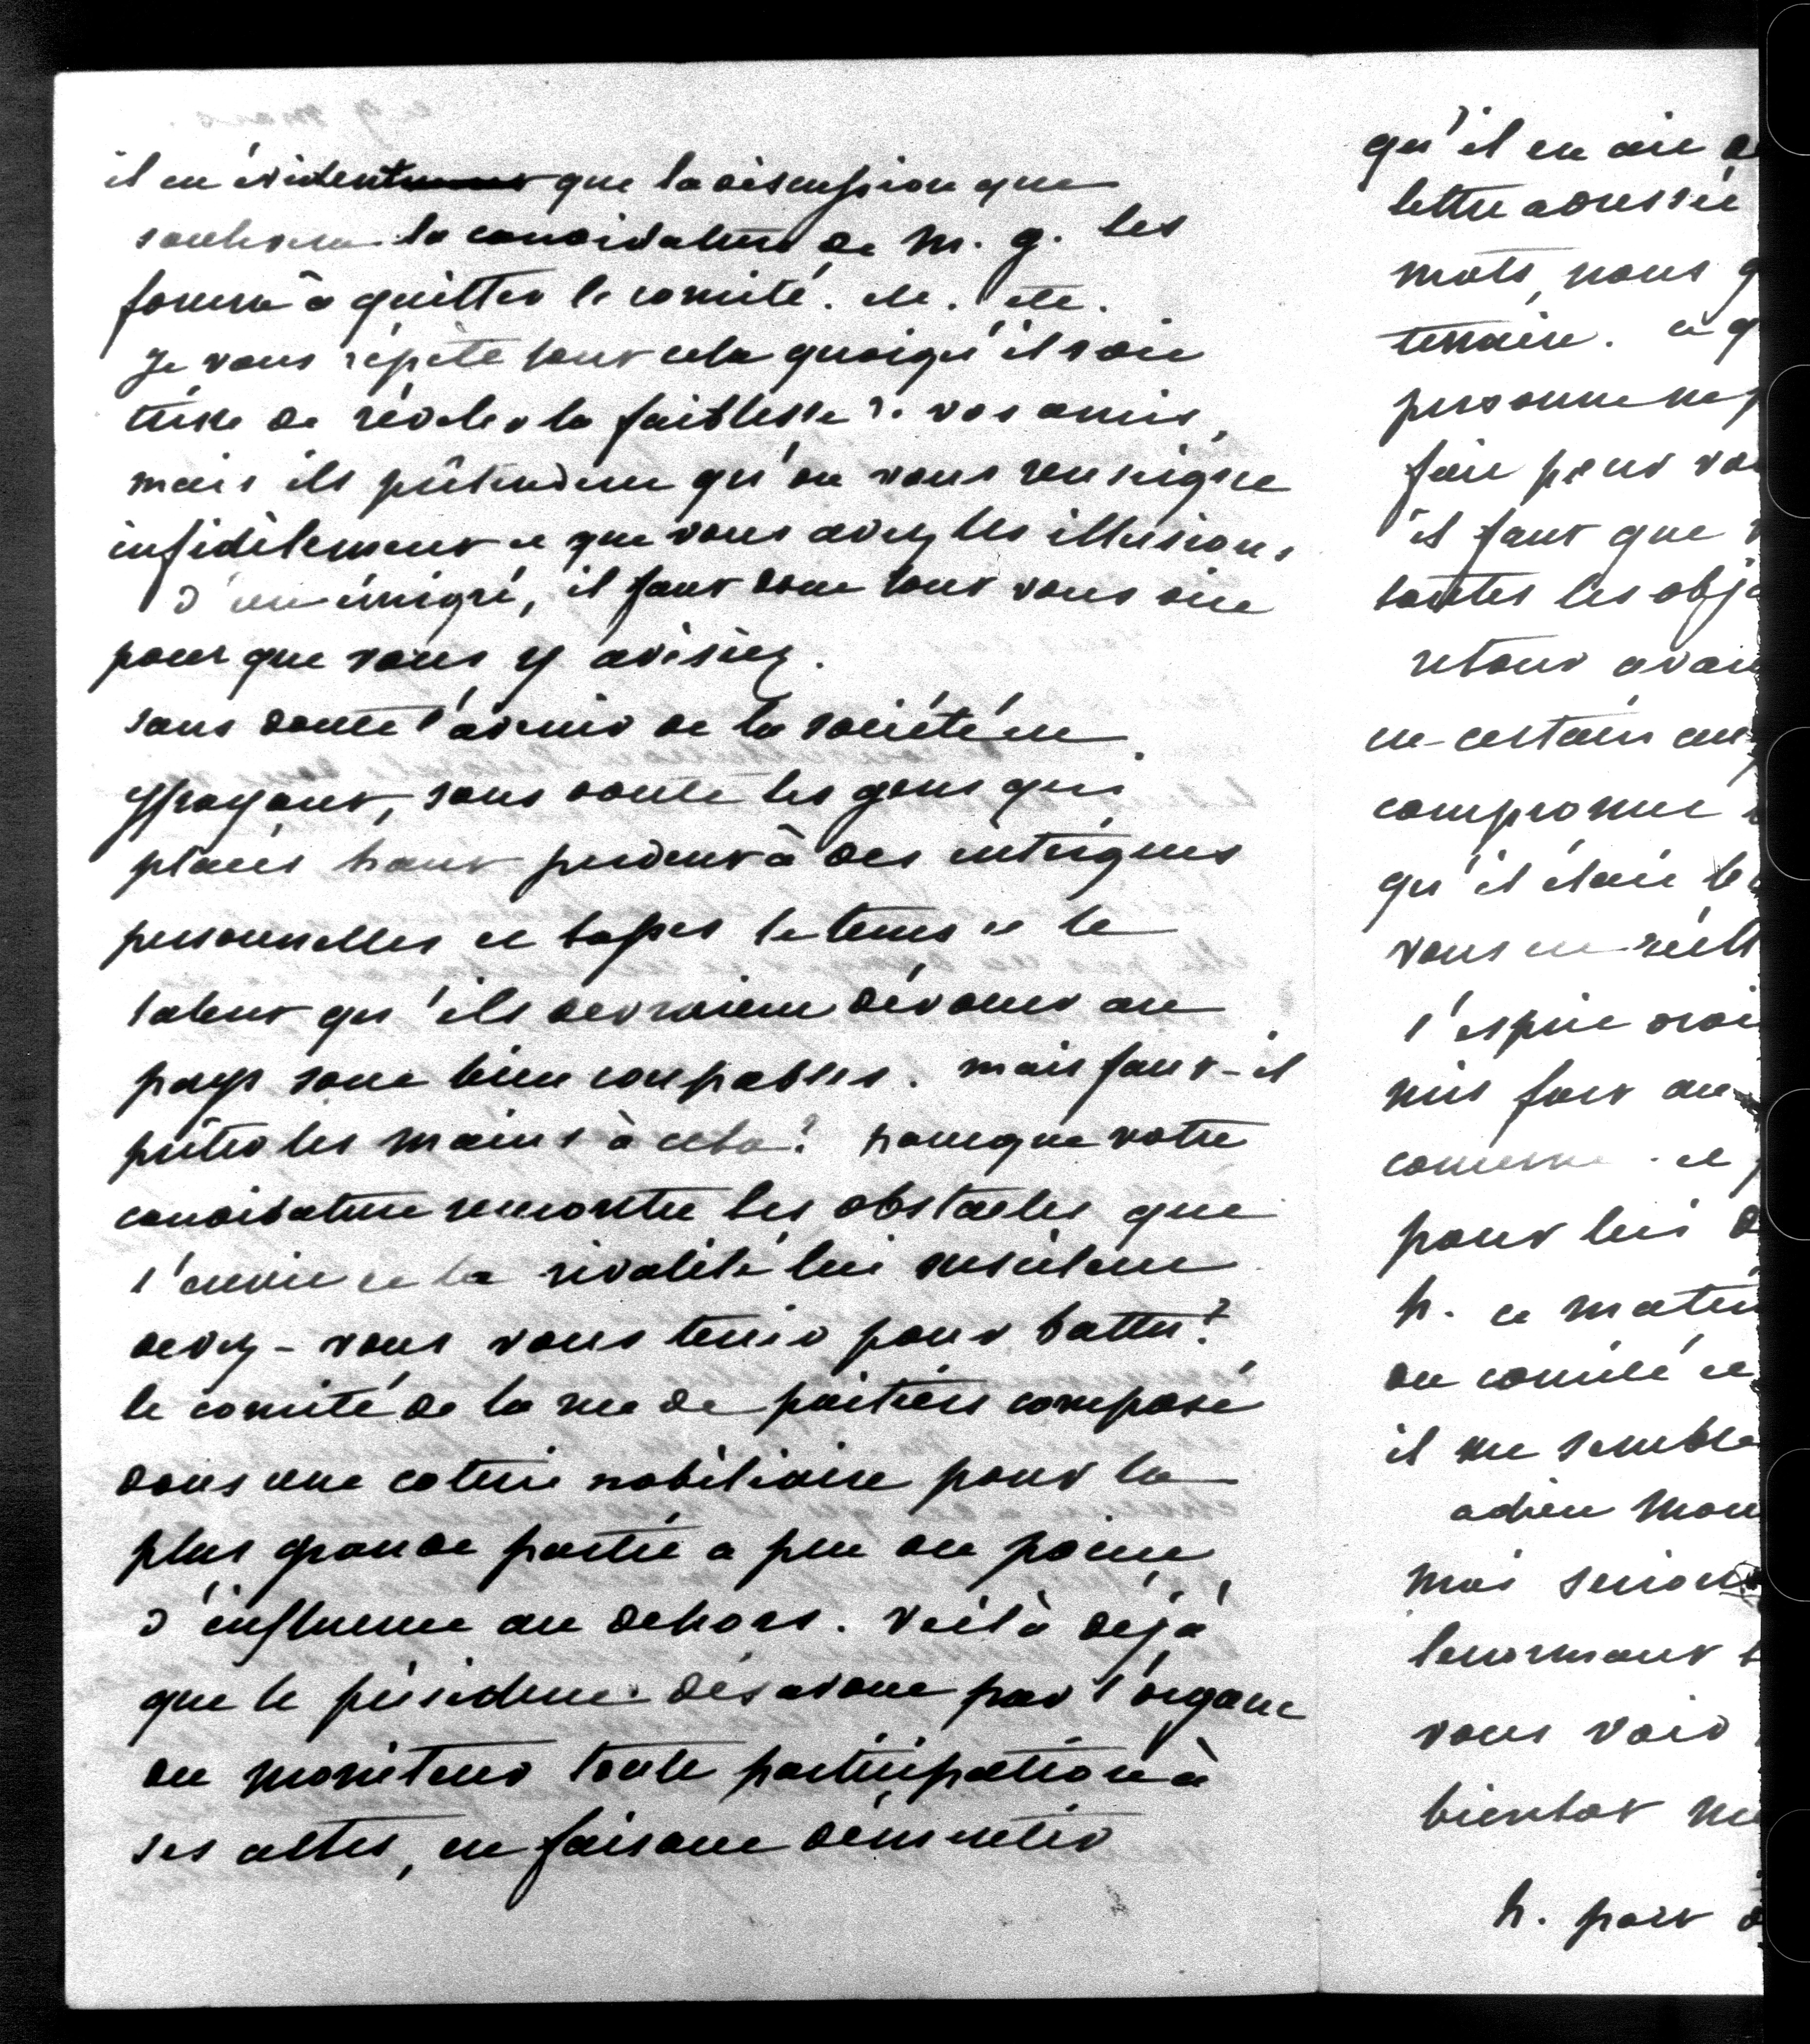 il est évident que la discussion que
soulevera la candidature de M. G. les
forcera à quitter le comité. etc. etc.
Je vous répète tout cela quoiqu'il soit
triste de révéler la faiblesse de vos amis,
mais ils prétendent qu'on vous renseigne
infidèlement et que vous avez les illusions
d'un émigré, il faut donc tout vous dire
pour que vous y avisiez.
sans doute l'avenir de la société est
effrayant, sans doute les gens qui
placés haut perdent à des intrigues
personnelles et basses le tems et le
talent qu'ils devraient dévouer au
pays sont bien coupables. mais faut-il
prêter les mains à cela? parceque votre
candidature rencontre les obstacles que
l'envie et la rivalité lui suscitent
devez-vous vous tenir pour battu?
le comité de la rue de poitiers composé
dans une coterie nobiliaire pour la
plus grande partie a peu ou point
d'influence au dehors. voilà déjà
que le président désavoue par l'organe
du moniteur toute participation à
ses actes, en faisant démentir
qu'il en ait
lettre adressée
mots, nous
terrain. ce
personne ne
faire pour
il faut que
toutes les
retour
un certain
compromet
qu'il était
vous en
l'esprit
mis fort au
comme et
pour lui
h. ce matin
du comité et
il me semble
adieu mon
moi
lenormant
vous voir
bientôt
h. part